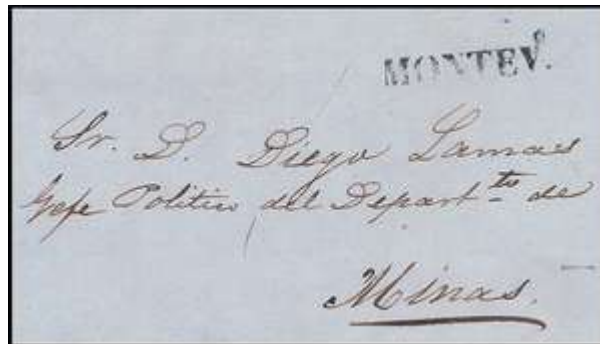 MONTEVº.
Sr. D. Diego Lamas
Gefe Politico del Departto de
Minas.